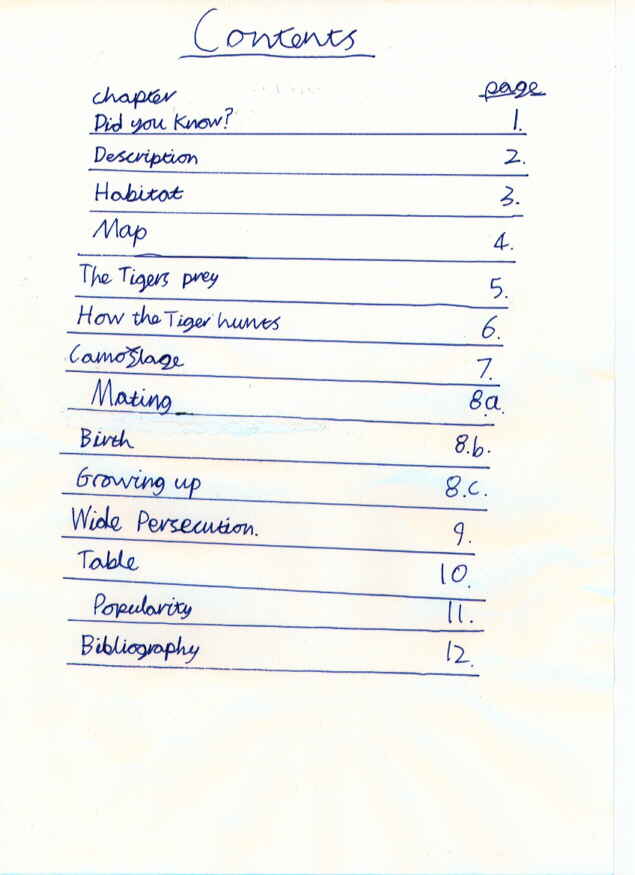 Contents
chapter page
Did you Know? 1.
Description 2.
Habitat 3.
Map 4.
The Tigers prey 5.
How the Tiger hunts 6.
Camoflage 7.
Mating 8a.
Birth 8.b.
Growing up 8.c.
Wide Persecution. 9.
Table 10.
Popularity 11.
Bibliography 12.